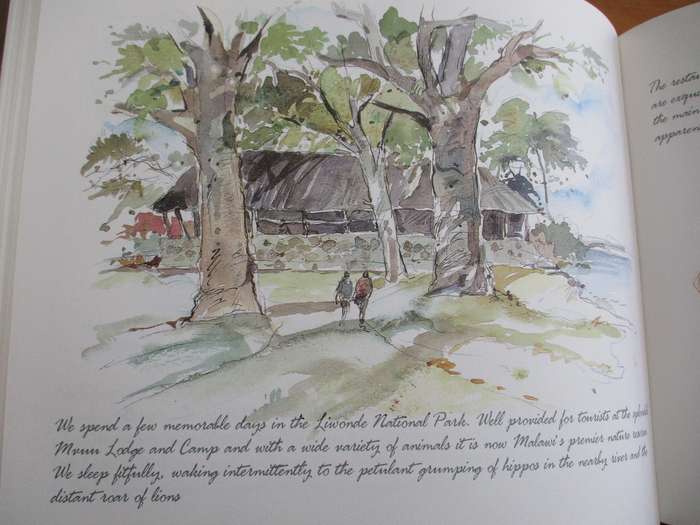 We spend a few memorable days in the Liwonde National Park. Well provided for tourists at the splendid
Mvuu Lodge and Camp and with a wide variety of animals it is now Malawi's premier nature reserve
We sleep fitfully, waking intermittently to the petulant grumping of hippos in the nearby river and the
distant roar of lions
The resta
are exqu
the main
appare